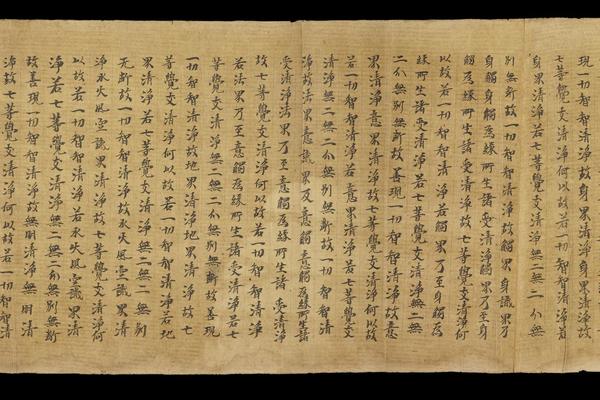 現一切智智清淨故身界清淨身界清淨故
七等覺支清淨何以故若一切智智清淨若
身界清淨若七等覺支清淨無二無二分無
別無斷故一切智智清淨故觸界身識界及
身觸身觸為緣所生諸受清淨觸界乃至身
觸為緣所生諸受清淨故七等覺支清淨何
以故若一切智智清淨若觸界乃至身觸為
緣所生諸受清淨若七等覺支清淨無二無
二分無別無斷故善現一切智智清淨故意
界清淨意界清淨故七等覺支清淨何以故
若一切智智清淨若意界清淨若七等覺支
清淨無二無二分無別無斷故一切智智清
淨故法界意識界及意觸意觸為緣所生諸
受清淨法界乃至意觸為緣所生諸受清淨
故七等覺支清淨何以故若一切智智清淨
若法界乃至意觸為緣所生諸受清淨若七
等覺支清淨無二無二分無別無斷故善現
一切智智清淨故地界清淨地界清淨故七
等覺支清淨何以故若一切智智清淨若地
界清淨若七等覺支清淨無二無二分無別
无斷故一切智智清淨故水火風空識界清
淨水火風空識界清淨故七等覺支清淨何
以故若一切智智清淨若水火風空識界清
淨若七等覺支清淨無二無二分無別無斷
故善現一切智智清淨故無明清淨無明清
淨故七等覺支清淨何以故若一切智智清